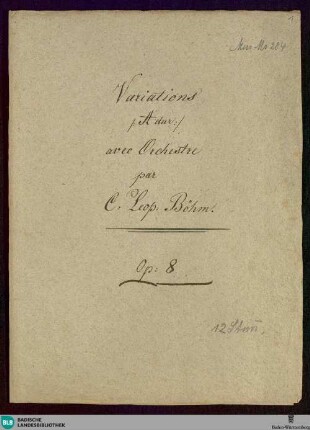 Mus. Ms 204
Variations
/: A dur :/
avec Orchestre
par
C. Leop. Böhm.
Op: 8
12 Stim̅.
BLB BADISCHE
LANDESBIBLIOTHEK
Baden-Württemberg